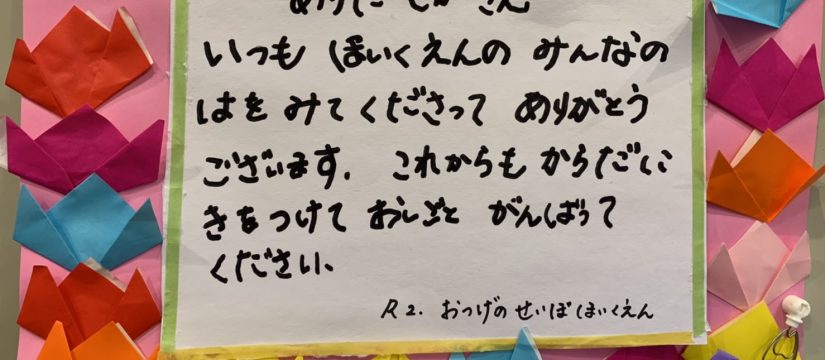 いつも ほいくえんの みんなの
はを みてくださって ありがとう
ございます. これからも からだに
きをつけて おしごと がんばって
ください.
R2. おつげの せいぼほいくえん